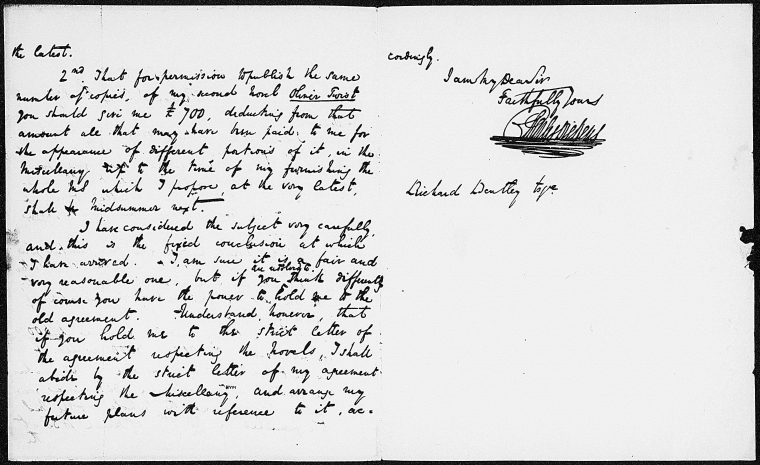 the latest.
2nd. That for permission to publish the same
number of copies, of my second novel Oliver Twist
you should give me £700, deducting from that
amount all that may have been paid to me for
the appearance of different portions of it, in the
Miscellany to the time of my furnishing the
whole MS which I propose, at the very latest,
shall be Midsummer next.
I have considered the subject very carefully,
and this is the fixed conclusion at which
I have arrived. I am sure it is a fair and
very reasonable one, but if you are resolved to think differently
of course you have the power to hold me to the
old agreement. Understand, however, that
if you hold me to the strict letter of
the agreement respecting the Novels, I shall
abide by the strict letter of my agreement
respecting the Miscellany, and arrange my
future plans with reference to it, ac=
cordingly.
I am My Dear Sir
Faithfully Yours
Charles Dickens
Richard Bentley Esqre.